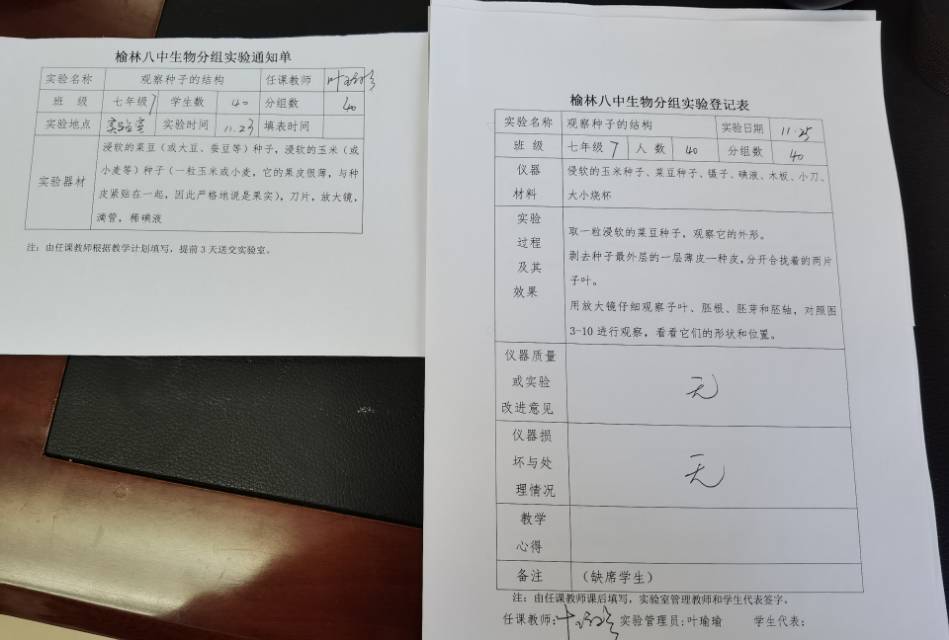 榆林八中生物分组实验通知单
实验名称 观察种子的结构 任课教师
班 级 七年级7 学生数 40 分组数 40
实验地点 实验室 实验时间 11.23 填表时间
实验器材
浸软的菜豆（或大豆、蚕豆等）种子，浸软的玉米（或
小麦等）种子（一粒玉米或小麦，它的果皮很薄，与种
皮紧贴在一起，因此严格地说是果实），刀片，放大镜，
滴管，稀碘液
注：由任课教师根据教学计划填写，提前3天送交实验室。
榆林八中生物分组实验登记表
实验名称 观察种子的结构 实验日期 11.25
班 级 七年级7 人 数 40 分组数 40
仪器
材料
浸软的玉米种子、菜豆种子、镊子、碘液、木板、小刀、
大小烧杯
实验
过程
及其
效果
取一粒浸软的菜豆种子，观察它的外形。
剥去种子最外层的一层薄皮一种皮，分开合拢着的两片
子叶。
用放大镜仔细观察子叶、胚根、胚芽和胚轴，对照图
3-10进行观察，看看它们的形状和位置。
仪器质量
或实验
改进意见
无
仪器损
坏与处
理情况
无
教学
心得
备注 （缺席学生）
注：由任课教师课后填写，实验室管理教师和学生代表签字。
任课教师: 实验管理员:叶瑜瑜 学生代表: